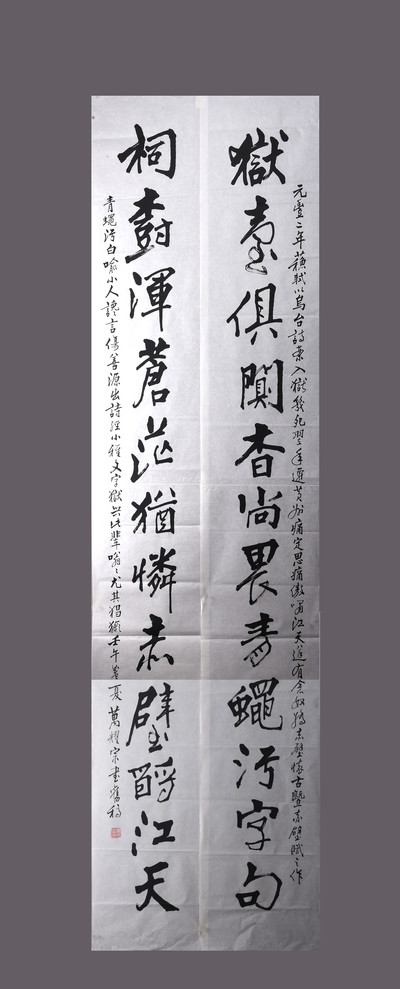 元豐二年蘇軾以烏台詩案入獄幾死翌年遷黃州痛定思痛傲嘯江天遂有念奴嬌赤壁懷古暨赤壁賦之作
獄臺俱闃杳尚畏青蠅污字句
祠樹渾蒼茫猶憐赤壁酹江天
青蠅污白喻小人讒言傷善源出詩經小雅文字獄興此輩嗡〻尤其猖獗壬午夏萬耀宗書舊稿